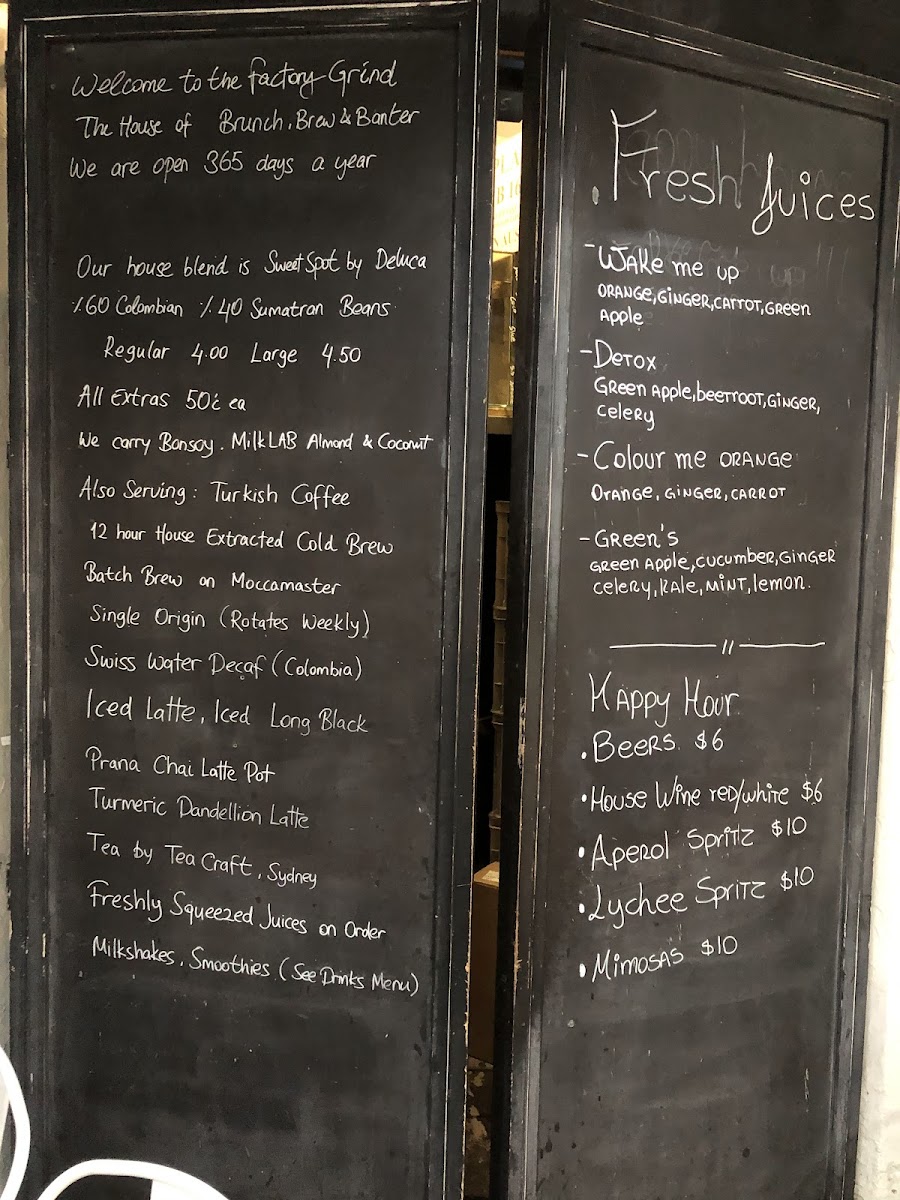 Welcome to the Factory Grind
The House of Brunch, Brew & Banter
We are open 365 days a year
Our house blend is Sweet Spot by Deluca
%60 Colombian %40 Sumatran Beans
Regular 4.00 Large 4.50
All Extras 50¢ ea
We carry Bonsoy. MilkLAB Almond & Coconut
Also Serving: Turkish Coffee
12 hour House Extracted Cold Brew
Batch Brew on Moccamaster
Single Origin (Rotates Weekly)
Swiss Water Decaf (Colombia)
Iced Latte, Iced Long Black
Prana Chai Latte Pot
Turmeric Dandellion Latte
Tea by Tea Craft, Sydney
Freshly Squeezed Juices on Order
Milkshakes, Smoothies (See Drinks Menu)
Fresh Juices
- Wake me up
Orange, Ginger, Carrot, Green
Apple
- Detox
Green Apple, beetroot, Ginger,
celery
- Colour me Orange
Orange, Ginger, Carrot
- Green's
Green Apple, cucumber, Ginger
celery, Kale, Mint, lemon.
Happy Hour
• Beers $6
• House Wine red/white $6
• Aperol Spritz $10
• Lychee Spritz $10
• Mimosas $10